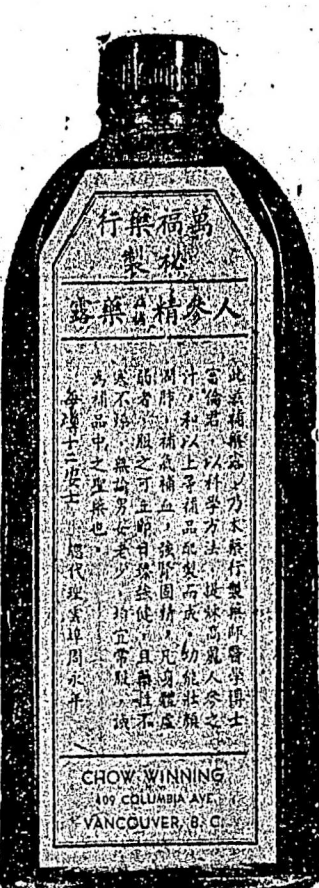 萬福藥行
秘製
人參精補藥露
此㳄補藥露，乃本藥行製藥師醫學博士
倫君，以科學方法，提煉高麗人參之
汁，和以上等補品配製而成，功能壯顏
潤肺，補氣補血，強腎固精，凡身體虛
弱者，服之可立即日見強健，且藥性不
寒不燥，無論男女老少，均宜常服，誠
為補品中之聖藥也。
每樽十二安士　總代理雲埠周永年
CHOW WINNING
409 COLUMBIA AVE.
VANCOUVER, B. C.